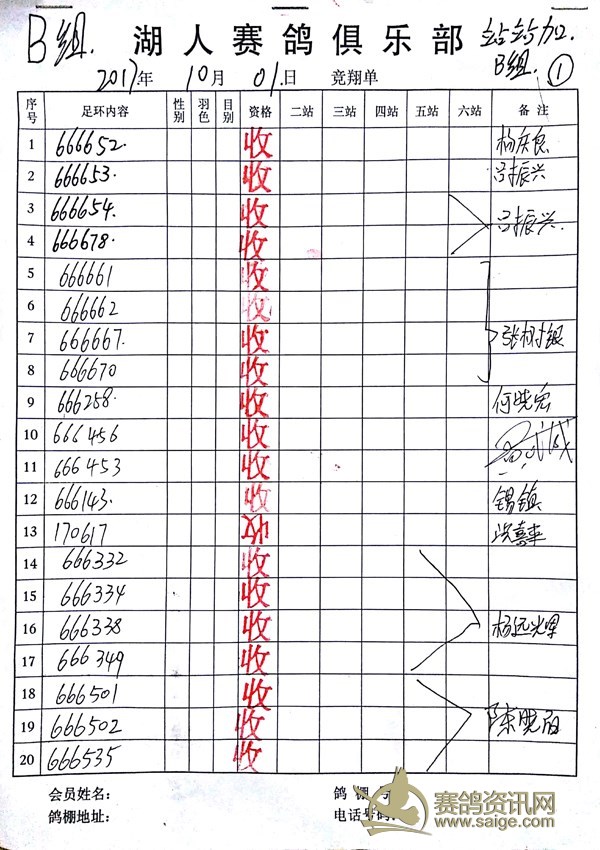 B组.
湖人赛鸽俱乐部
站站加.
B组. ①
2017年 10月 01日 竞翔单
序号 足环内容 性别 羽色 目别 资格 二站 三站 四站 五站 六站 备注
1 666652. 收 杨庆良
2 666653. 收 吕振兴
3 666654. 收 吕振兴.
4 666678. 收
5 666661 收
6 666662 收
7 666667. 收 张树银
8 666670 收
9 666258. 收 何晓宏
10 666456 收
11 666453 收
12 666143. 收 锡镇
13 170617 收
14 666332 收
15 666334 收
16 666338 收 杨远光军
17 666349 收
18 666501 收
19 666502 收 陈晓丽
20 666535 收
会员姓名: 鸽棚号:
鸽棚地址: 电话号码:
赛鸽资讯网
www.saige.com